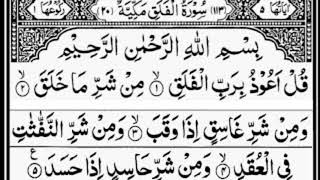 اٰیَاتُهَا ٥ (١١٣) سُوْرَةُ الْفَلَقِ مَكِّيَّةٌ (٢٠) رُكُوْعُهَا ١
بِسْمِ اللّٰهِ الرَّحْمٰنِ الرَّحِيْمِ
قُلْ اَعُوْذُ بِرَبِّ الْفَلَقِ ۙ﴿١﴾ مِنْ شَرِّ مَا خَلَقَ ۙ﴿٢﴾
وَمِنْ شَرِّ غَاسِقٍ اِذَا وَقَبَ ۙ﴿٣﴾ وَمِنْ شَرِّ النَّفّٰثٰتِ
فِي الْعُقَدِ ۙ﴿٤﴾ وَمِنْ شَرِّ حَاسِدٍ اِذَا حَسَدَ ﴿٥﴾ ع